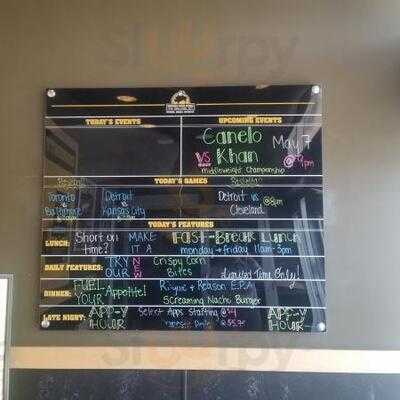 TODAY'S EVENTS
UPCOMING EVENTS
Canelo
vs Khan
May 7
@ 9pm
middleweight Championship
TODAY'S GAMES
Baseball
Toronto
@
Baltimore
Detroit
@
Kansas City
Detroit vs
Cleveland
@ 8pm
TODAY'S FEATURES
LUNCH:
Short on
time?
MAKE
IT A
Fast-Break Lunch
monday - friday 11am-3pm
DAILY FEATURES:
TRY
OUR
NEW
Crispy Corn
Bites
Limited Time Only!
DINNER:
FUEL
YOUR
Appetite!
Rhyme + Reason E.P.A
Screaming Nacho Burger
LATE NIGHT:
APP-Y
HOUR
Select Apps Starting @ $4
APP-Y
HOUR